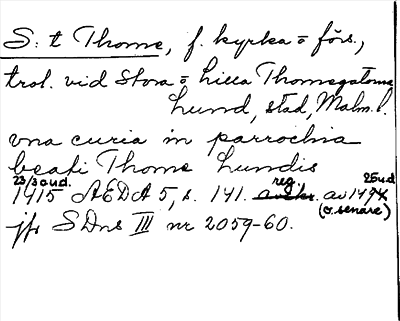 S:t Thome, f. kyrka o förs.,
trol. vid Stora o Lilla Thomegatorna
Lund, stad, Malm. l.
vna curia in parrochia
beati Thome Lundis
23/3 oud. 25ud
1415 ÆDA 5, s. 141. reg. avskr. av 1494
(o senare)
jfr SDns III nr 2059-60.